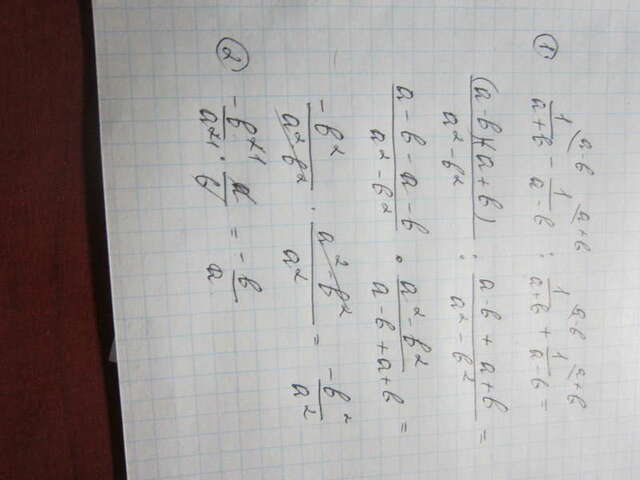 ① 1/(a+b) ^(a-b) - 1/(a-b) ^(a+b) : 1/(a+b) ^(a-b) + 1/(a-b) ^(a+b) =
(a-b)(a+b)/(a²-b²) : (a-b+a+b)/(a²-b²) =
(a-b-a-b)/(a²-b²) · (a²-b²)/(a-b+a+b) =
-b²/(a²-b²) · (a²-b²)/a² = -b²/a²
② -b²⁺¹/a²⁺¹ · a/b = -b/a